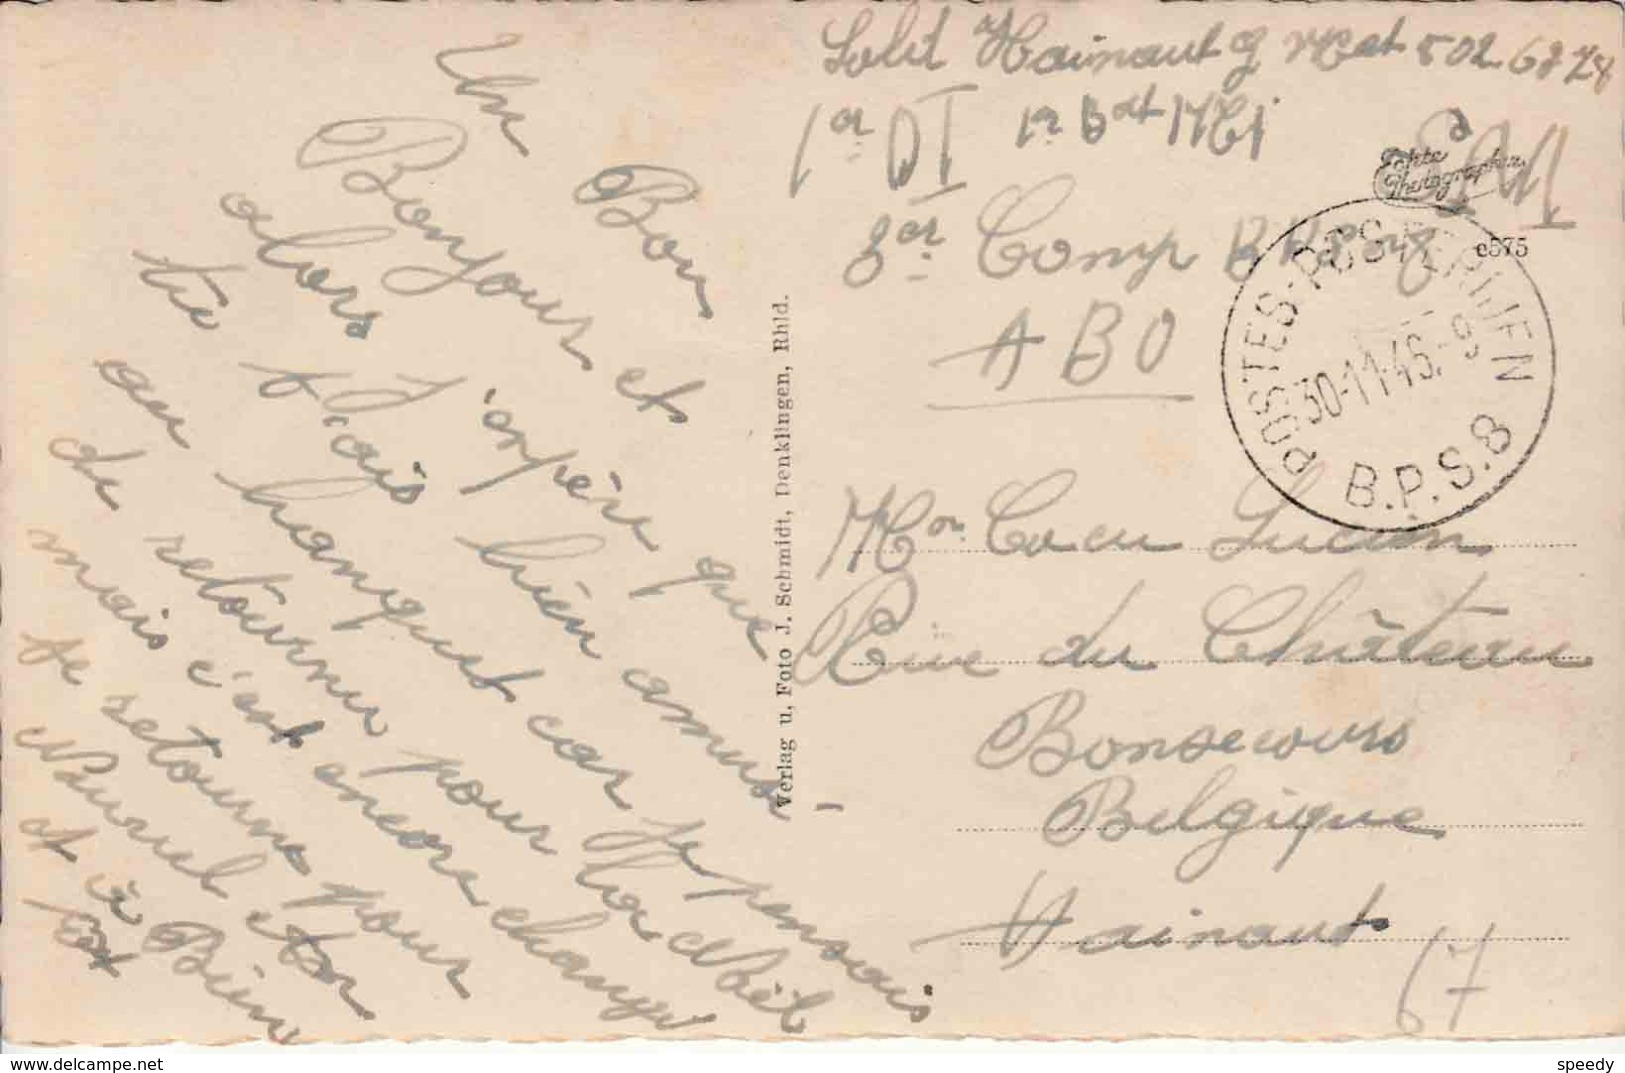 Un Bon
Bonjour et
alors j'espère que
tu t'ais bien amusé
au banquet car je pensais
de retourner pour la Noël
mais c'est encore changé
je retourne pour
Nouvel An
et à Bien
tot
Verlag u. Foto J. Schmidt, Denklingen, Rhld.
Sold Hainaut g Mat 502 6878
1er DI 1er Bat
SM
Echte
Photographie
3er Comp
ABO
c575
POSTES-POSTERIJEN
30-11-46.-9
B.P.S.8
Mon Cocu Lucien
Rue du Château
Bonsecours
Belgique
Hainaut
67
speedy